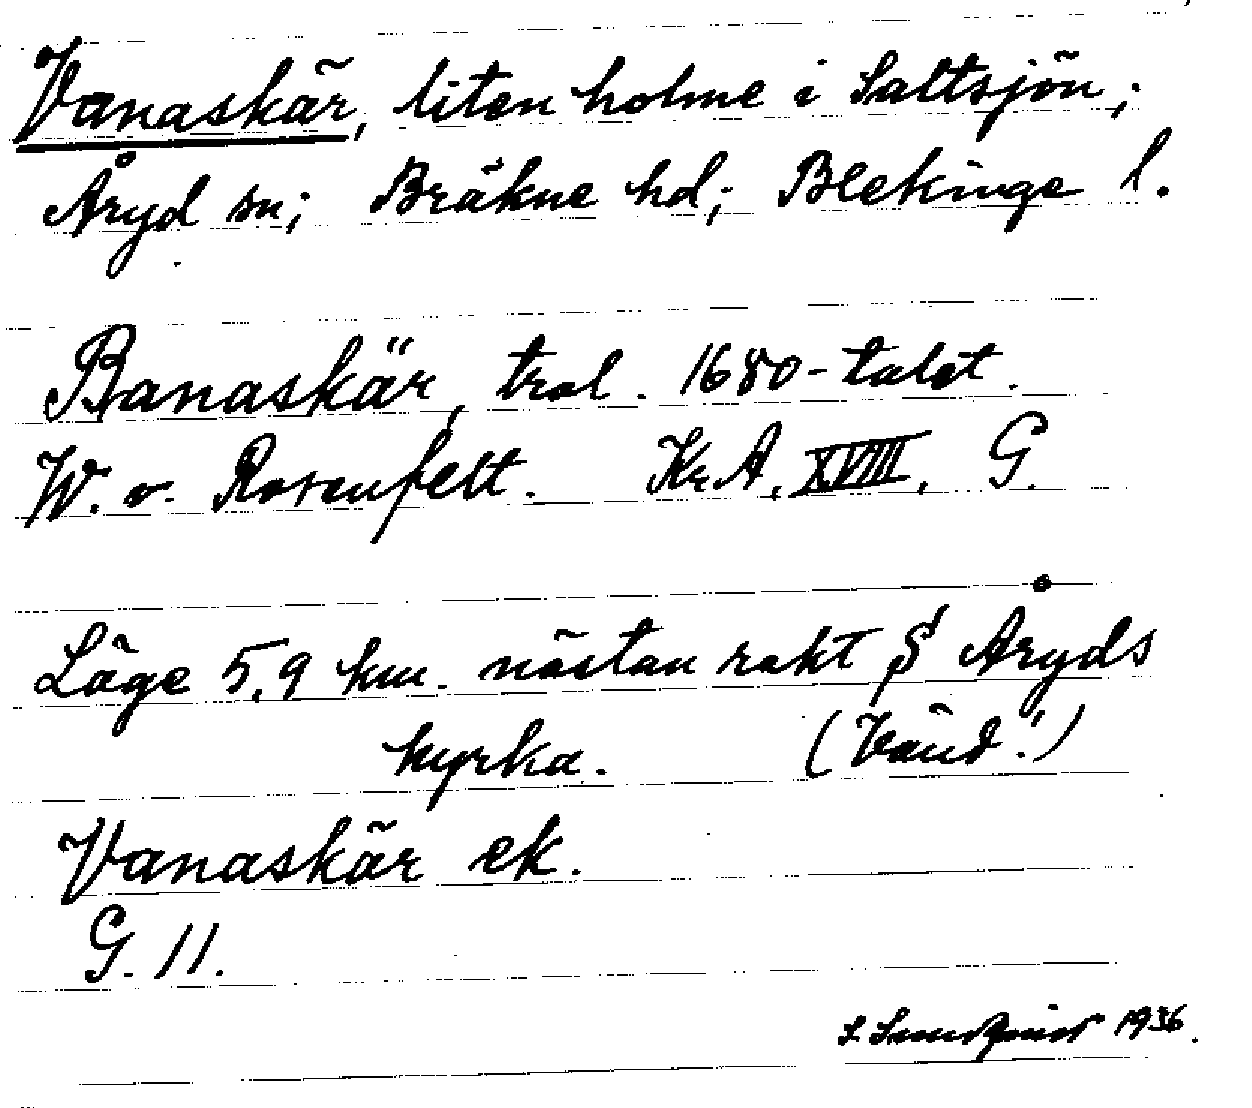 Vanaskär, liten holme i Saltsjön;
Åryd sn; Bräkne hd; Blekinge l.
Banaskär, trol. 1680-talet.
W. v. Rosenfelt. Kr.A. XVIII, G.
Läge 5,9 km. nästan rakt S Åryds
kyrka. (Vänd!)
Vanaskär ek.
G. 11.
S. Sundquist 1936.